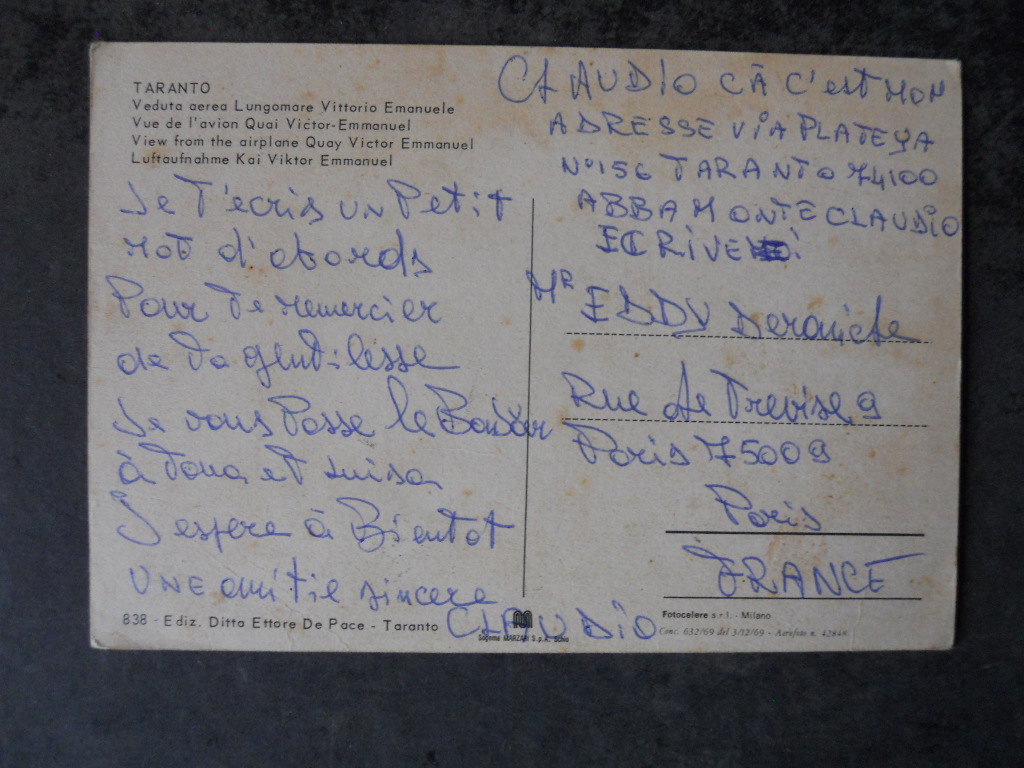 TARANTO
Veduta aerea Lungomare Vittorio Emanuele
Vue de l'avion Quai Victor-Emmanuel
View from the airplane Quay Victor Emmanuel
Luftaufnahme Kai Viktor Emmanuel
Je T'écris UN Petit
mot d'abords
Pour Te remercier
de Ta gentilesse
Je vous Passe le
à Tous et
J'espere à Bientot
UNE amitie sincere
CLAUDIO
838 - Ediz. Ditta Ettore De Pace - Taranto
CLAUDIO CĀ C'est MON
ADRESSE VIA PLATEYA
N°156 TARANTO 74100
ABBAMONTE CLAUDIO
ECRIVE
Mr EDDY
Rue de Trevise 9
Paris 75009
Paris
FRANCE
Sogema MARZARI S.p.A. Schio
Fotocelere s.r.l. - Milano
Conc. 632/69 del 3/12/69 - Aerofoto n. 42848